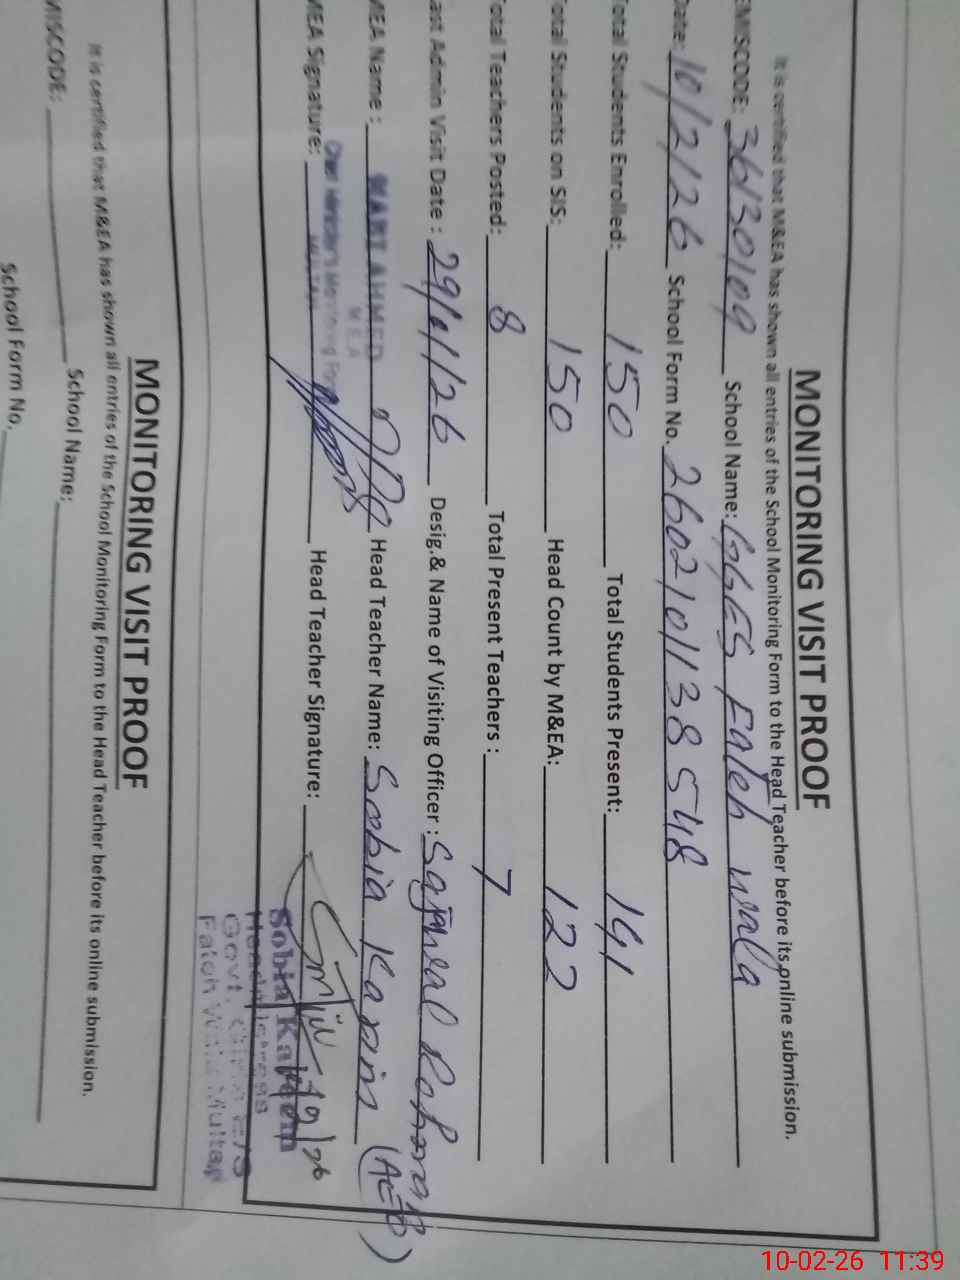 MONITORING VISIT PROOF
It is certified that M&EA has shown all entries of the School Monitoring Form to the Head Teacher before its online submission.
EMISCODE: 36130109 School Name: GGES Fateh wala
Date: 10/2/26 School Form No. 2602101138548
Total Students Enrolled: 150 Total Students Present: 141
Total Students on SIS: 150 Head Count by M&EA: 122
Total Teachers Posted: 8 Total Present Teachers : 7
Last Admin Visit Date : 29/01/26 Desig.& Name of Visiting Officer :
MEA Name : AHMED Head Teacher Name: Sobia Karim
M.E.A
MEA Signature: Head Teacher Signature:
Chief Minister's Monitoring Force
MULTAN
Sobia
Headmistress
Govt. Girls E/S
Fateh Wala Multan
MONITORING VISIT PROOF
It is certified that M&EA has shown all entries of the School Monitoring Form to the Head Teacher before its online submission.
MISCODE: School Name:
School Form No.
10-02-26 11:39